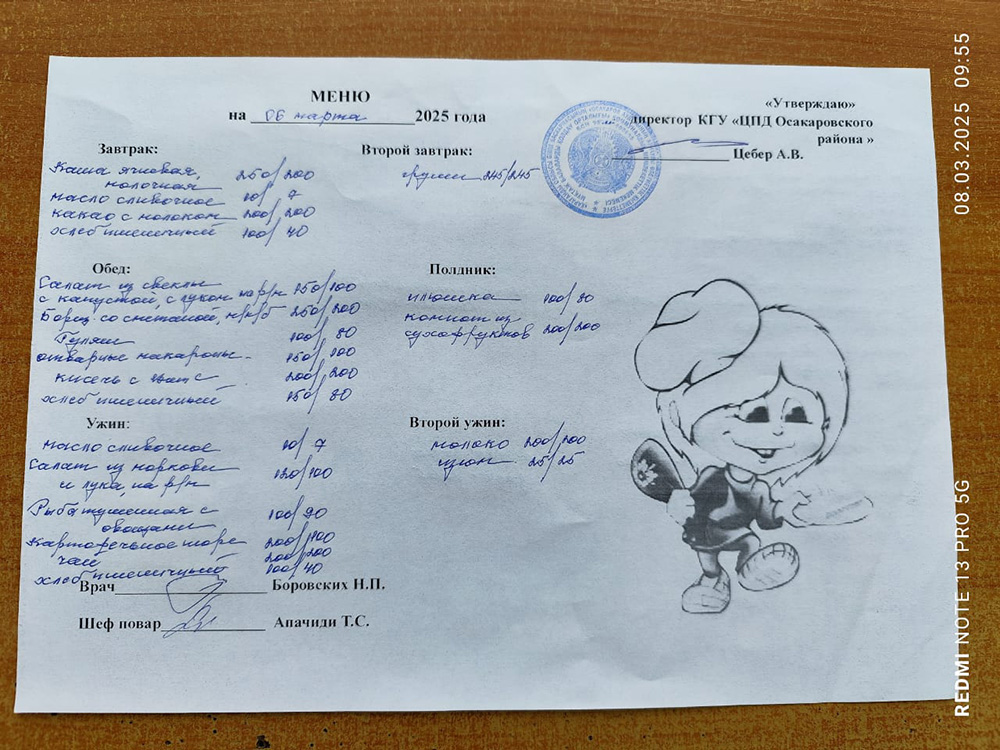 МЕНЮ
на 06 марта 2025 года
«Утверждаю»
директор КГУ «ЦПД Осакаровского
района »
Цебер А.В.
Завтрак:
Каша ячневая,
молочная 250/200
масло сливочное 10/7
какао с молоком 200/200
хлеб пшеничный 100/40
Второй завтрак:
груши 245/245
Обед:
Салат из свеклы
с капустой, с луком на р/м 150/100
Борщ со сметаной, н/к/б 250/200
Гуляш 100/80
отварные макароны 150/100
кисель с вит С 200/200
хлеб пшеничный 150/80
Полдник:
плюшка 100/80
компот из
сухофруктов 200/200
Ужин:
масло сливочное 10/7
Салат из моркови
и лука, на р/м 120/100
Рыба тушенная с
овощами 100/90
Картофельное пюре 200/100
чай 200/200
хлеб пшеничный 100/40
Второй ужин:
молоко 200/200
изюм 25/25
Врач Боровских Н.П.
Шеф повар Апачиди Т.С.
REDMI NOTE 13 PRO 5G
08.03.2025 09:55